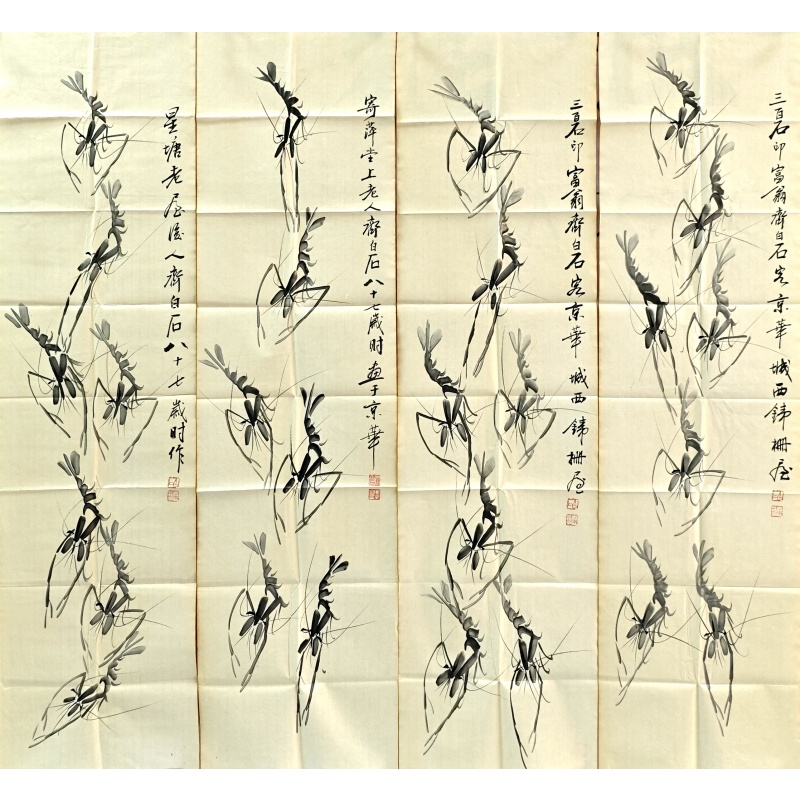 三百石印富翁齊白石客京華城西鐵柵屋
三百石印富翁齊白石客京華城西鐵柵屋
寄萍堂上老人齊白石八十七歲時畫于京華
星塘老屋後人齊白石八十七歲时作